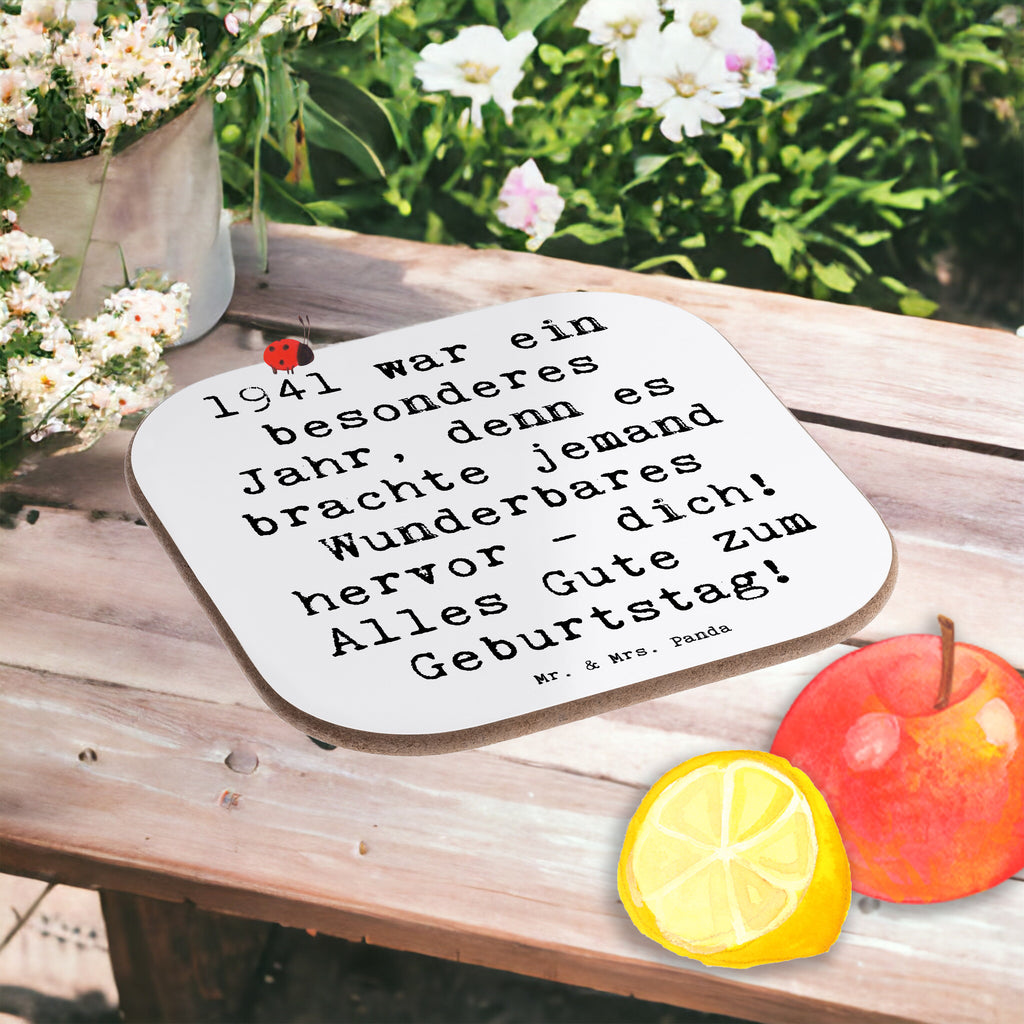 1941 war ein
besonderes
Jahr, denn es
brachte jemand
Wunderbares
hervor - dich!
Alles Gute zum
Geburtstag!
Mr. & Mrs. Panda